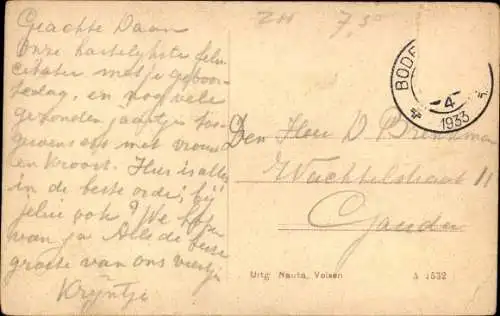 Geachte Daan
Onze hartelijkste feli-
citatie met je geboor-
tedag, en nog vele
gezonden jaartjes toe-
gewenst met vrouw
en Kroost. Hier is alles
in de beste orde, bij
jelui ook? We hopen
van ja Alle de beste
groete van ons viertje
Krijntje
ZH 7,5
BODE
4
1933
Den Heer D
Wachtelstraat 11
Gouda
Uitg Nauta, Velsen A 1532